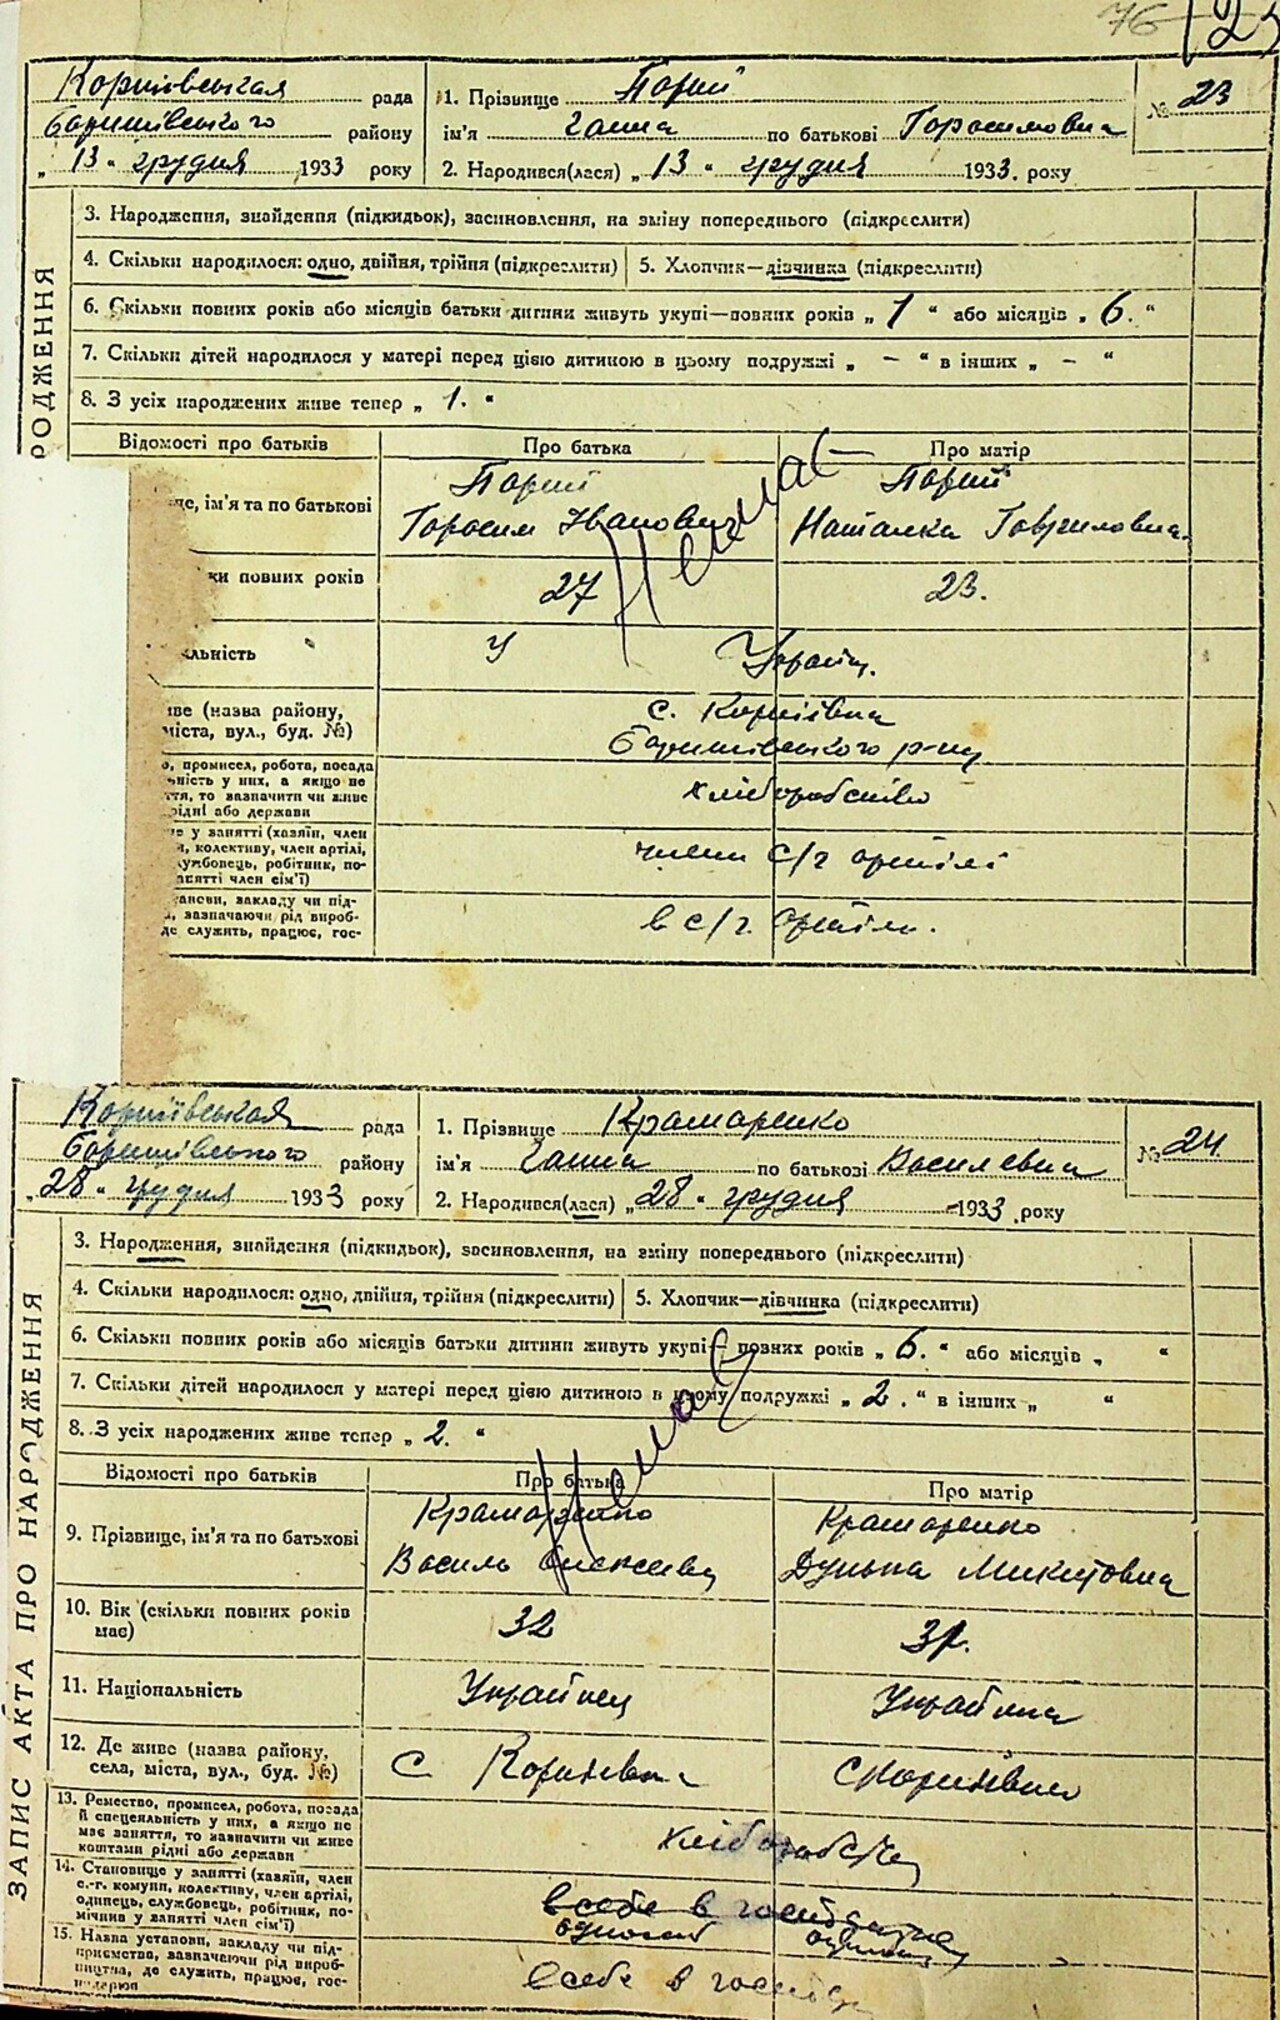 76
Корніївська рада
Баришівського району
„ 13 “ грудня 1933 року
1. Прізвище Порий
ім'я Ганна по батькові Горасимовна
2. Народився(лася) „ 13 “ грудня 1933. року
№ 23
РОДЖЕННЯ
3. Народження, знайдення (підкидьок), засиновлення, на зміну попереднього (підкреслити)
4. Скільки народилося: одно, двійня, трійня (підкреслити)
5. Хлопчик—дівчинка (підкреслити)
6. Скільки повних років або місяців батьки дитини живуть укупі—повних років „ 1 “ або місяців „ 6. “
7. Скільки дітей народилося у матері перед цією дитиною в цьому подружжі „ – “ в інших „ – “
8. З усіх народжених живе тепер „ 1. “
Відомості про батьків
Про батька
Про матір
ще, ім'я та по батькові
Порий
Горосим Іванович
Порий
Наталка Гавриловна.
Немає
ки повних років
27
23.
льність
У
Україн.
иве (назва району,
міста, вул., буд. №)
с. Корніївка
Баришівського р-ну
о, промисел, робота, посада
ність у них, а якщо не
ття, то зазначити чи живе
рідні або держави
хліборобство
не у занятті (хазяїн, член
и, колективу, член артілі,
ужбовець, робітник, по-
анятті член сім'ї)
члени с/г артілі
танови, закладу чи під-
, зазначаючи рід вироб-
де служить, працює, гос-
в с/г. артіли.
Корніївська рада
Баришівського району
„ 28 “ грудня 1933 року
1. Прізвище Крамаренко
ім'я Ганна по батькові Василевна
2. Народився(лася) „ 28 “ грудня 1933 року
№ 24.
ЗАПИС АКТА ПРО НАРОДЖЕННЯ
3. Народження, знайдення (підкидьок), засиновлення, на зміну попереднього (підкреслити)
4. Скільки народилося: одно, двійня, трійня (підкреслити)
5. Хлопчик—дівчинка (підкреслити)
6. Скільки повних років або місяців батьки дитини живуть укупі— повних років „ 6. “ або місяців „ “
7. Скільки дітей народилося у матері перед цією дитиною в цьому подружжі „ 2. “ в інших „ “
8. З усіх народжених живе тепер „ 2. “
Немає
Відомості про батьків
Про батька
Про матір
9. Прізвище, ім'я та по батькові
Крамаренко
Василь
Крамаренко
Дунька Микитовна
10. Вік (скільки повних років
має)
32
31.
11. Національність
Українец
Українка
12. Де живе (назва району,
села, міста, вул., буд. №)
С Корніївка
С Корніївка
13. Ремество, промисел, робота, посада
й спецеяльність у них, а якщо не
має заняття, то зазначити чи живе
коштами рідні або держави
14. Становище у занятті (хазяїн, член
с.-г. комуни, колективу, член артілі,
одинець, службовець, робітник, по-
мічник у занятті член сім'ї)
в себе в
15. Назва установи, закладу чи під-
приємства, зазначаючи рід вироб-
ництва, де служить, працює, гос-
подарює
в себе в